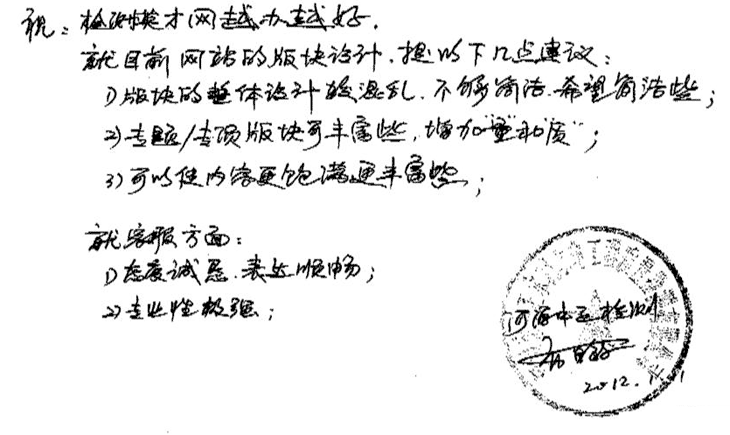 祝：检测英才网越办越好．
就目前网站的版块设计，提以下几点建议：
1）版块的整体设计较混乱．不够简洁．希望简洁些；
2）专题/专项版块可丰富些，增加“量”和“质”；
3）可以使内容更饱满更丰富些；
就客服方面：
1）态度诚恳．表达顺畅；
2）专业性较强；
河海中正检测
2012.1